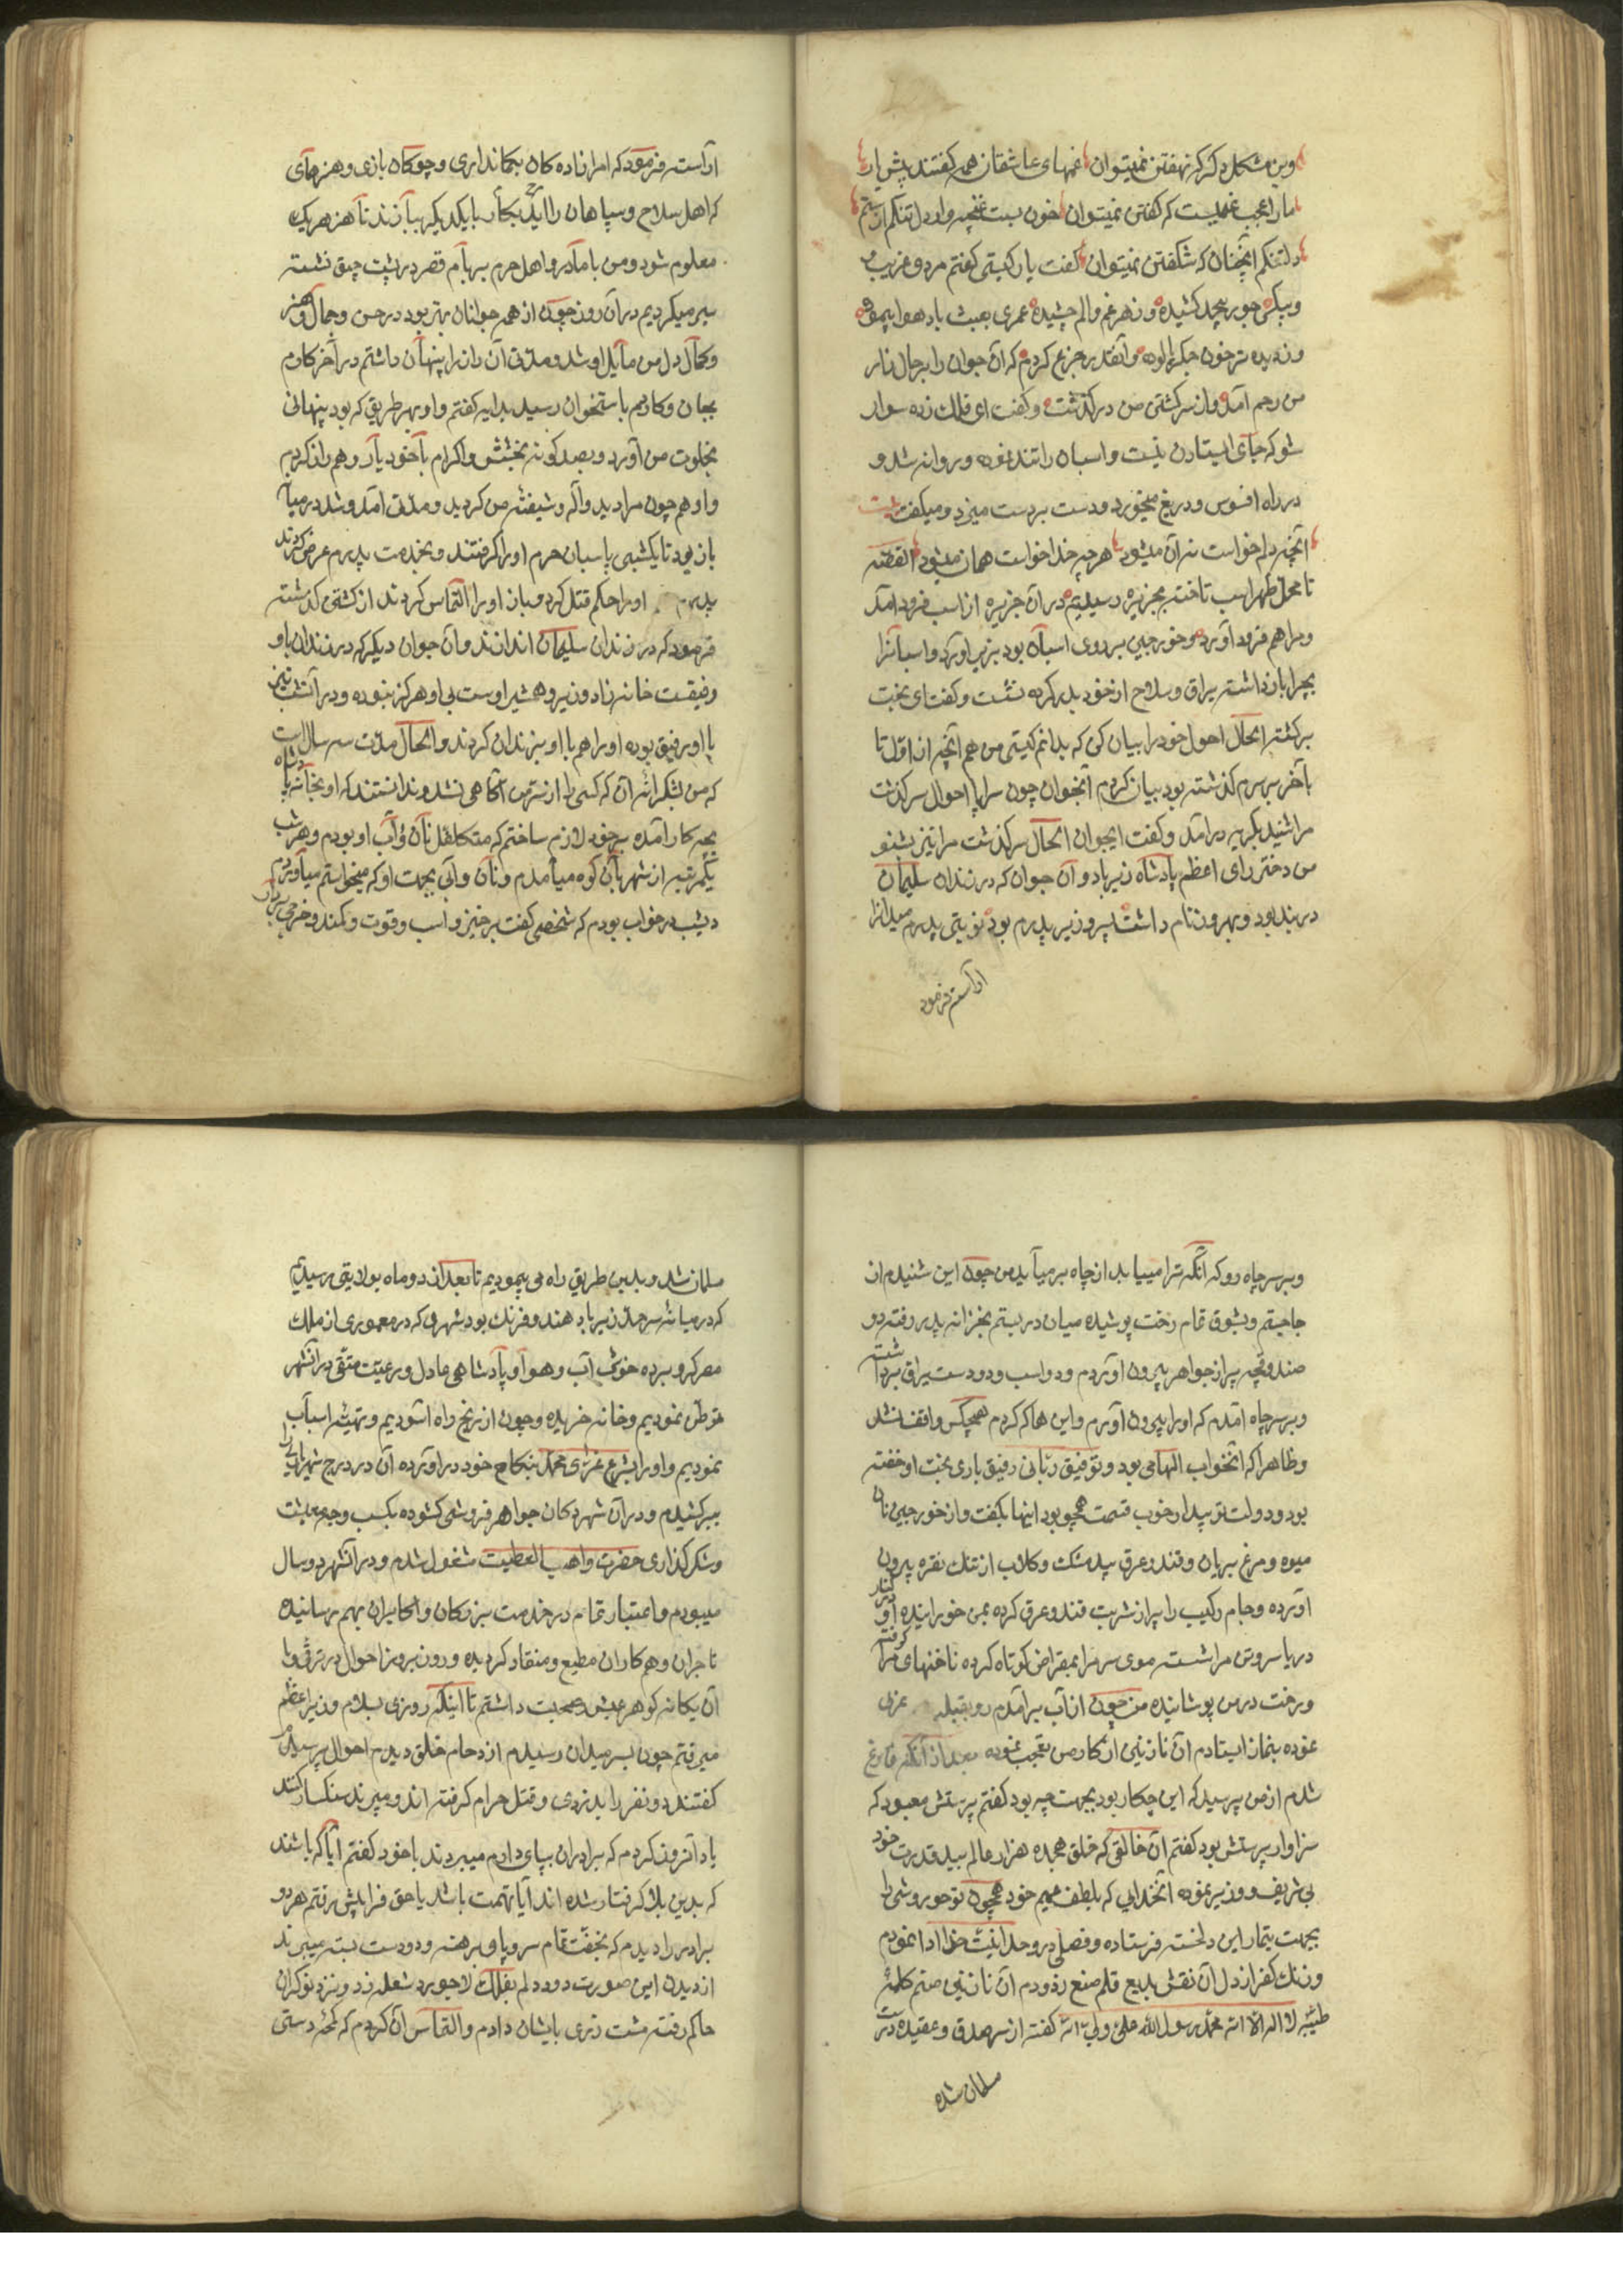 وین مشکل دکر که نهفتن نمیتوان غمهای عاشقان همه گفتند پیش یار
مارا عجب غمیست که گفتن نمیتوان خون بست غنچه وار دل تنکم از ستم
دلتنکم آنچنان که شکفتن نمیتوان گفت یار کیستی گفتم مرد غریب
وبیکس جور بیحد کشیده وزهر غم والم چشیده عمری بعبث باد هوا پیموده
وزدیده تر خون جکر پالوده وآنقدر جزع کردم که آن جوان را بر حال زار
من رحم آمد واز سر کشتن من درگذشت وگفت ای فلک زده سوار
شو که جای ایستادن نیست واسبان را تند نموده وروانه شد و
در راه افسوس ودریغ میخورد ودست بر دست میزد ومیکفت بیت
آنچه دلم خواست نه آن میشود هرچه خدا خواست همان میشود القصّه
تا محل ظهر اسب تاخته بجزیره رسیدیم در آن جزیره از اسب فرود آمد
ومرا هم فرود آورد وخورجینی بر روی اسبان بود بزیر آورد واسبانرا
بچرا بازداشته یراق وسلاح از خود بدر کرده نشست وگفت ای بخت
برکشته الحال احوال خود را بیان کن که بدانم کیستی من هم آنچه از اوّل تا
بآخر بر سرم گذشته بود بیان کردم آنجوان چون سراپا احوال سرگذشت
مرا شنید بکریه درآمد وگفت ایجوان الحال سرگذشت مرا نیز بشنو
من دختر رای اعظم پادشاه زیرباد وآن جوان که در زندان سلیمان
در بند بود وبهروز نام داشت پسر وزیر پدرم بود نوبتی پدرم میدانرا
آراسته فرمود
آراسته فرمود که امرازاده کان بکمانداری وچوکان بازی وهنرهای
که اهل سلاح وسپاهان را آید بکار با یکدیکر ببازند تا هنر هر یک
معلوم شود ومن با مادر واهل حرم ببر بام قصر در پشت چیق نشسته
سیر میکردیم در آن روز چون از همه جوانان بهتر بود در حسن وجمال وهنر
وکمال دل من مایل او شد ومدّتی آن راز را پنهان داشتم در آخر کارم
بجان وکاردم باستخوان رسید بدایه گفتم واو بهر طریق که بود پنهانی
بخلوت من آورد وبصد کونه بخشش واکرام با خود یار وهمراز کردم
واو هم چون مرا دید واله وشیفته من کردید ومدّتی آمد وشد در میان
باز بود تا یکشبی پاسبان حرم او را کرفتند وبخدمت پدرم عرض کردند
پدرم او را حکم قتل کرد وباز او را التماس کردند از کشتن گذشته
فرمود که در زندان سلیمان اندازند وآن جوان دیکر که در زندان با او
رفیقست خانه زاد وزیر وهمشیر اوست بی او هرکز نبوده ودر آنشب نیز
با او رفیق بوده او را هم با او بزندان کردند والحال مدّت سه سال است
که من بشکرانه آن که کسی را از سرّ من آگاهی نشد وندانستند که او بخانه پادشاه
بچه کار آمده بر خود لازم ساختم که متکافل نان وآب او بودم وهر شب
یکمرتبه از شهر بآن کوه میآمدم ونان وآبی بجهت او که میخواستم میآوردم
دیشب در خواب بودم که شخصی گفت برخیز واسب وقوت وکمند وخرجی بردار
وبر سر چاه رو که آنکه ترا میباید از چاه بر میآید من چون این شنیدم از
جا جستم وبشوق تمام رخت پوشیده میان در بستم بخزانه پدر رفته دو
صندوقچه پر از جواهر بیرون آوردم ودو اسب ودو دست یراق برداشته
وبر سر چاه آمدم که او را بیرون آورم واین همه کار کردم هیچکس واقف نشد
وظاهرا که آنخواب الهامی بود وتوفیق ربّانی رفیق باری بخت او خفته
بود ودولت تو بیدار خوب قسمت همچو بود اینها بکفت واز خورجین نان
میوه ومرغ بریان وقند وعرق بیدمشک وکلاب از تنک نقره بیرون
آورده وجام رکیب را پر از شربت قند وعرق کرده بمن خورانیده در کنار
دریا سر وتن مرا شسته موی سر مرا بمقراض کوتاه کرده ناخنهای مرا گرفته
ورخت در من پوشانیده من چون از آب برآمدم رو بقبله
نموده بنماز ایستادم آن نازنین از کار من تعجّب نموده بعد از آنکه فارغ
شدم از من پرسید که این چکار بود بجهت چه بود گفتم پرستش معبود که
سزاوار پرستش بود گفتم آن خالقی که خلق هجده هزار عالم بید قدرت خود
بی شریک ووزیر نموده آنخدایی که بلطف عمیم خود همچون تو حوروشی را
بجهت تیمار این دلخسته فرستاده وفصلی در وحدانیت خدا ادا نمودم
وزنک کفر از دل آن نقش بدیع قلم صنع زدودم آن نازنین صنم کلمهٔ
طیّبه لا اله الّا الله محمّد رسول الله علیّ ولیّ الله گفته از سر صدق وعقیده درست
مسلمان شده
مسلمان شد وبدین طریق راه می پیمودیم تا بعد از دو ماه بولایتی رسیدیم
که در میانه سرحدّ زیرباد هند وفرنک بود شهری که در معموری از ملک
مصر کرو برده خوش آب وهوا وپادشاهی عادل ورعیّت متّقی در آنشهر
توطن نمودیم وخانه خریده وچون از رنج راه آسودیم وتهیّه اسباب
نمودیم واو را بشرع غرّای محمّد بنکاح خود درآورده آن در درج شهریاری را
ببر کشیدم ودر آن شهر دکان جواهر فروشی کشوده بکسب وجه معیشت
وشکرگذاری حضرت واهب العطیت مشغول شدم ودر آنشهر دو سال
میبودم واعتبار تمام در خدمت بزرکان واکابران بهم رسانیده
تاجران وهمکاران مطیع ومنقاد کردیده وروز بروز احوال در ترقّی وبا
آن یکانه کوهر عیش وصحبت داشتم تا اینکه روزی بسلام وزیر اعظم
میرفتم چون بسر میدان رسیدم ازدحام خلق دیدم احوال پرسیدم
گفتند دو نفر را بدزدی وقتل حرام کرفته اند ومیبرند سنکسار کنند
یاد آنروز کردم که برادران بپای دارم میبردند با خود گفتم آیا که باشند
که بدین بلا کرفتار شده اند آیا تهمت باشد یا حق فرا پیش رفتم هر دو
برادر را دیدم که بخفّت تمام سر وپا برهنه ودو دست بسته میبرند
از دیدن این صورت دود دلم بفلک لاجورد شعله زد ونزد نوکران
حاکم رفته مشت زری بایشان دادم والتماس آن کردم که لمحهٔ دستی